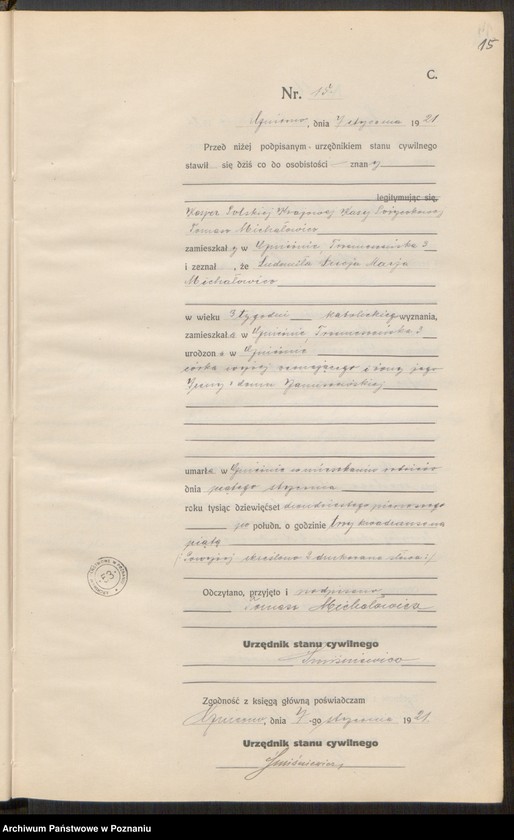 15
C.
Nr. 15
Gniezno, dnia 7 stycznia 1921
Przed niżej podpisanym urzędnikiem stanu cywilnego
stawił się dziś co do osobistości znany
legitymując się,
Polskiej Krajowej Kasy Pożyczkowej
Tomasz Michałowicz
zamieszkały w Gnieźnie, 3
i zeznał, że Ludmiła Marja
Michałowicz
w wieku 3 tygodni katolickiego wyznania,
zamieszkała w Gnieźnie, 3
urodzona w Gnieźnie
córka zeznającego i żony jego
z domu
umarła w Gnieźnie w mieszkaniu rodziców
dnia piątego stycznia
roku tysiąc dziewięćset dwudziestego pierwszego
po połudn. o godzinie trzy kwadranse na
piątą
Powyżej skreślono 2 drukowane słowa
Odczytano, przyjęto i podpisano
Tomasz Michałowicz
Urzędnik stanu cywilnego
Zgodność z księgą główną poświadczam
Gniezno, dnia 7-go stycznia 1921.
Urzędnik stanu cywilnego
53
Archiwum Państwowe w Poznaniu